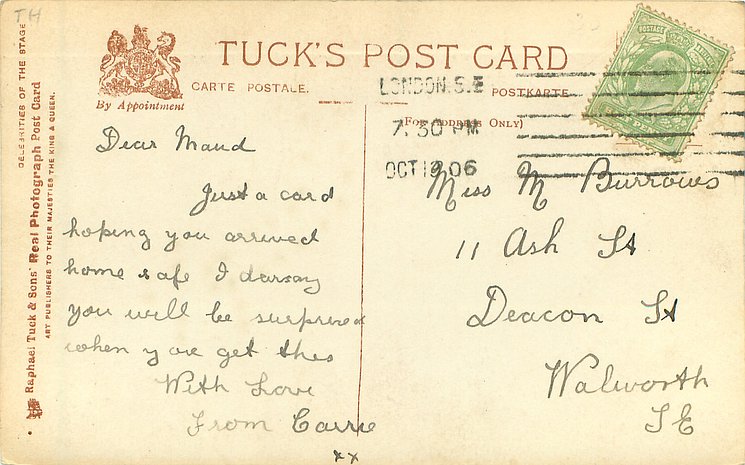 TH
CELEBRITIES OF THE STAGE
Raphael Tuck & Sons' Real Photograph Post Card
ART PUBLISHERS TO THEIR MAJESTIES THE KING & QUEEN.
By Appointment
TUCK'S POST CARD
CARTE POSTALE.
POSTKARTE
(For Address Only)
LONDON. S.E
7.30 PM
OCT 19 06
POSTAGE
Dear Maud
Just a card
hoping you arrived
home safe I darsay
you will be surprised
when you get this
With Love
From Carrie
xx
Miss M Burrows
11 Ash St
Deacon St
Walworth
SE